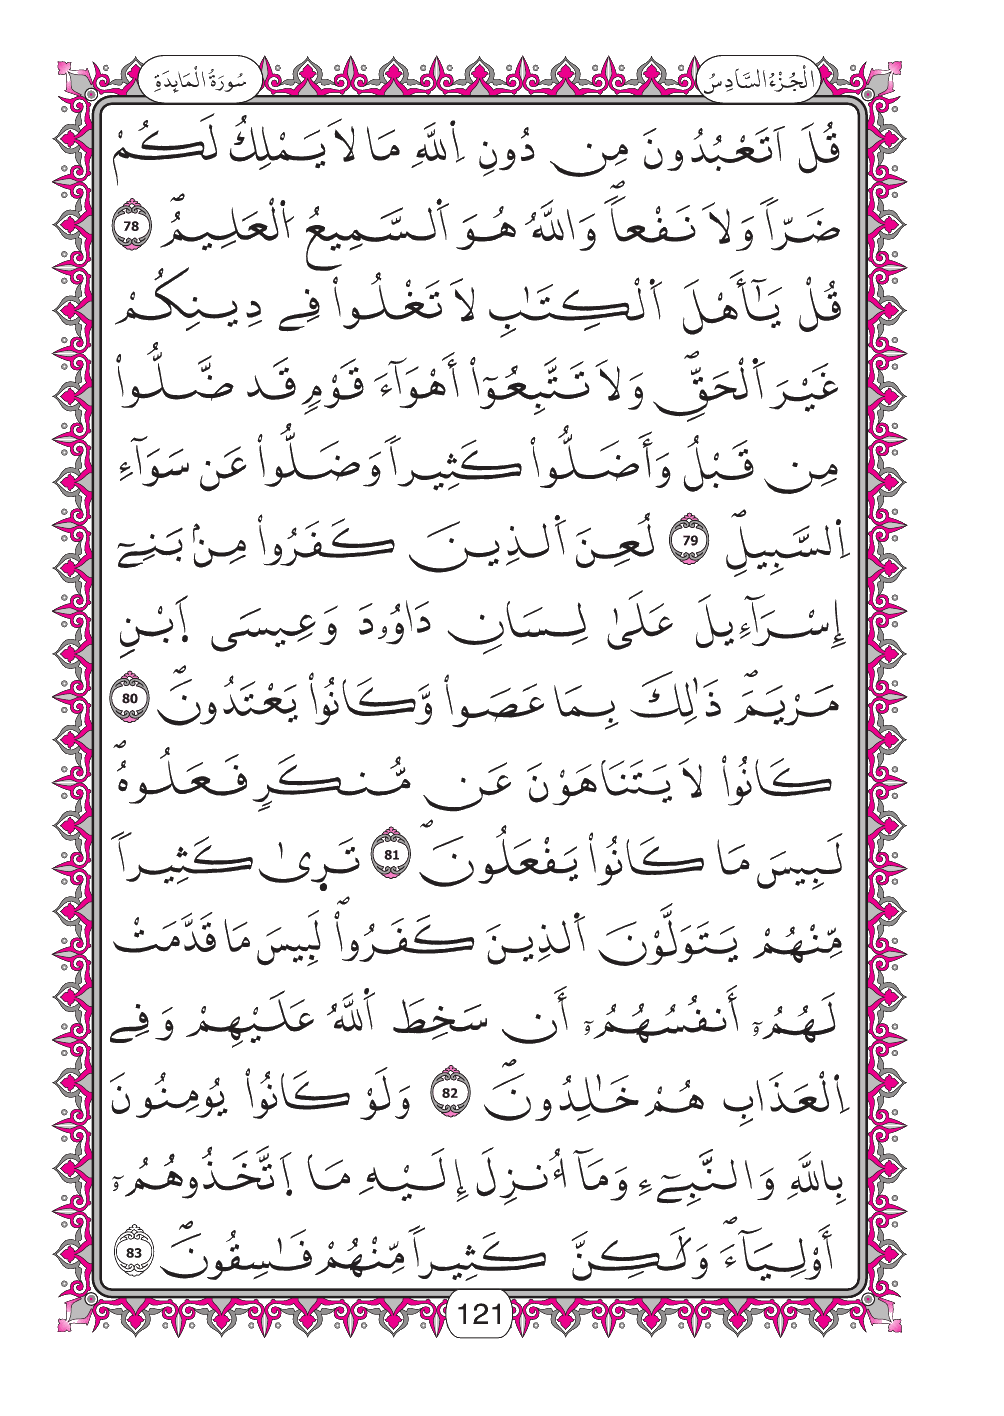 اَ۬لْجُزْءُ السَّادِسُ
سُورَةُ الْمَائِدَةِ
قُلَ اَتَعْبُدُونَ مِن دُونِ اِ۬للَّهِ مَا لاَ يَمْلِكُ لَكُمْ
ضَرّاً وَلاَ نَفْعاًۖ وَاللَّهُ هُوَ اَ۬لسَّمِيعُ اُ۬لْعَلِيمُۖ 78
قُلْ يَٰٓأَهْلَ اَ۬لْكِتَٰبِ لاَ تَغْلُواْ فِے دِينِكُمْ
غَيْرَ اَ۬لْحَقِّۖ وَلاَ تَتَّبِعُوٓاْ أَهْوَآءَ قَوْمٖ قَد ضَّلُّواْ
مِن قَبْلُ وَأَضَلُّواْ كَثِيراً وَضَلُّواْ عَن سَوَآءِ
اِ۬لسَّبِيلِۖ 79 لُعِنَ اَ۬لذِينَ كَفَرُواْ مِنۢ بَنِےٓ
إِسْرَآءِيلَ عَلَىٰ لِسَانِ دَاوُۥدَ وَعِيسَى اَ۪بْنِ
مَرْيَمَۖ ذَٰلِكَ بِمَا عَصَواْ وَّكَانُواْ يَعْتَدُونَۖ 80
كَانُواْ لاَ يَتَنَاهَوْنَ عَن مُّنكَرٖ فَعَلُوهُۖ
لَبِيسَ مَا كَانُواْ يَفْعَلُونَۖ 81 تَر۪ىٰ كَثِيراً
مِّنْهُمْ يَتَوَلَّوْنَ اَ۬لذِينَ كَفَرُواْۖ لَبِيسَ مَا قَدَّمَتْ
لَهُمُۥٓ أَنفُسُهُمُۥٓ أَن سَخِطَ اَ۬للَّهُ عَلَيْهِمْ وَفِے
اِ۬لْعَذَابِ هُمْ خَٰلِدُونَۖ 82 وَلَوْ كَانُواْ يُومِنُونَ
بِاللَّهِ وَالنَّبِےٓءِ وَمَآ أُنزِلَ إِلَيْهِ مَا اَ۪تَّخَذُوهُمُۥٓ
أَوْلِيَآءَۖ وَلَٰكِنَّ كَثِيراً مِّنْهُمْ فَٰسِقُونَۖ 83
121